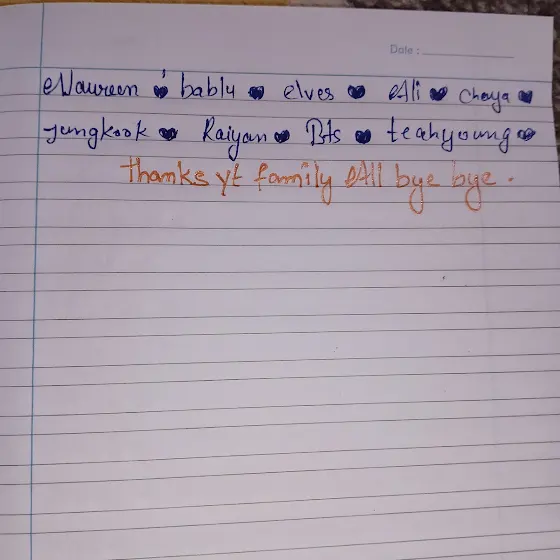 Date :
Naureen bablu elves Ali chaya
jungkook Raiyan Bts teahyoung
Thanks yt family All bye bye.